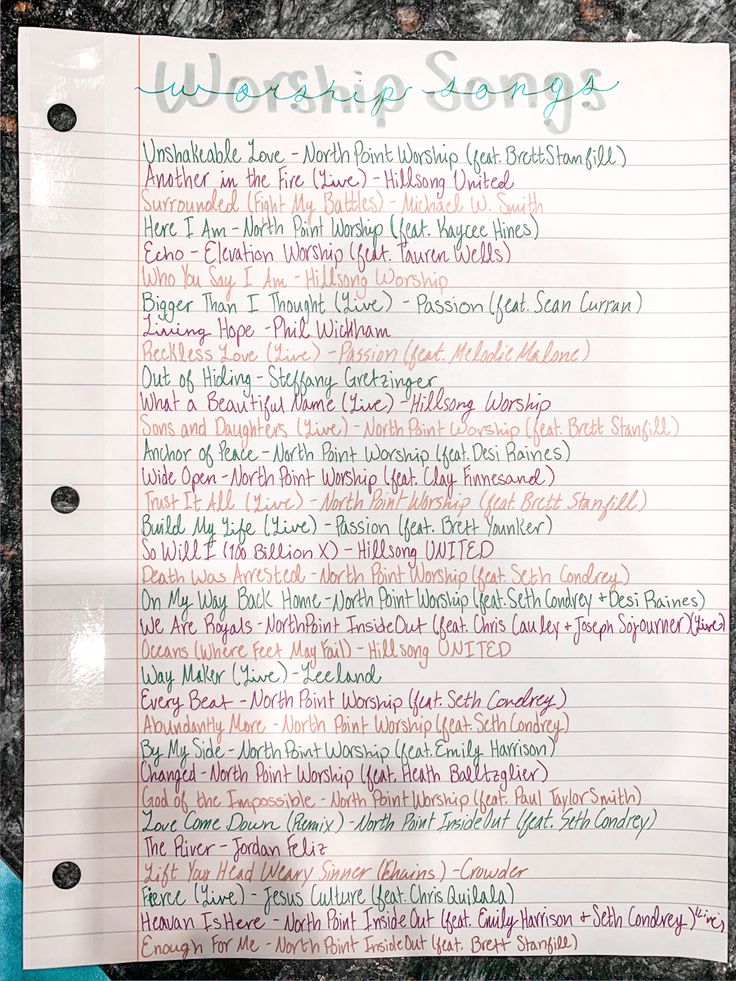 Worship Songs
Unshakeable Love - North Point Worship (feat. Brett Stanfill)
Another in the Fire (Live) - Hillsong United
Surrounded (Fight My Battles) - Michael W. Smith
Here I Am - North Point Worship (feat. Kaycee Hines)
Echo - Elevation Worship (feat. Tauren Wells)
Who You Say I Am - Hillsong Worship
Bigger Than I Thought (Live) - Passion (feat. Sean Curran)
Living Hope - Phil Wickham
Reckless Love (Live) - Passion (feat. Melodie Malone)
Out of Hiding - Steffany Gretzinger
What a Beautiful Name (Live) - Hillsong Worship
Sons and Daughters (Live) - North Point Worship (feat. Brett Stanfill)
Anchor of Peace - North Point Worship (feat. Desi Raines)
Wide Open - North Point Worship (feat. Clay Finnesand)
Trust It All (Live) - North Point Worship (feat. Brett Stanfill)
Build My Life (Live) - Passion (feat. Brett Younker)
So Will I (100 Billion X) - Hillsong UNITED
Death Was Arrested - North Point Worship (feat. Seth Condrey)
On My Way Back Home - North Point Worship (feat. Seth Condrey + Desi Raines)
We Are Royals - North Point InsideOut (feat. Chris Cauley + Joseph Sojourner) (Live)
Oceans (Where Feet May Fail) - Hillsong UNITED
Way Maker (Live) - Leeland
Every Beat - North Point Worship (feat. Seth Condrey)
Abundantly More - North Point Worship (feat. Seth Condrey)
By My Side - North Point Worship (feat. Emily Harrison)
Changed - North Point Worship (feat. Heath Balltzglier)
God of the Impossible - North Point Worship (feat. Paul Taylor Smith)
Love Come Down (Remix) - North Point InsideOut (feat. Seth Condrey)
The River - Jordan Feliz
Lift Your Head Weary Sinner (Chains) - Crowder
Fierce (Live) - Jesus Culture (feat. Chris Quilala)
Heavan Is Here - North Point Inside Out (feat. Emily Harrison + Seth Condrey) (Live)
Enough For Me - North Point InsideOut (feat. Brett Stanfill)